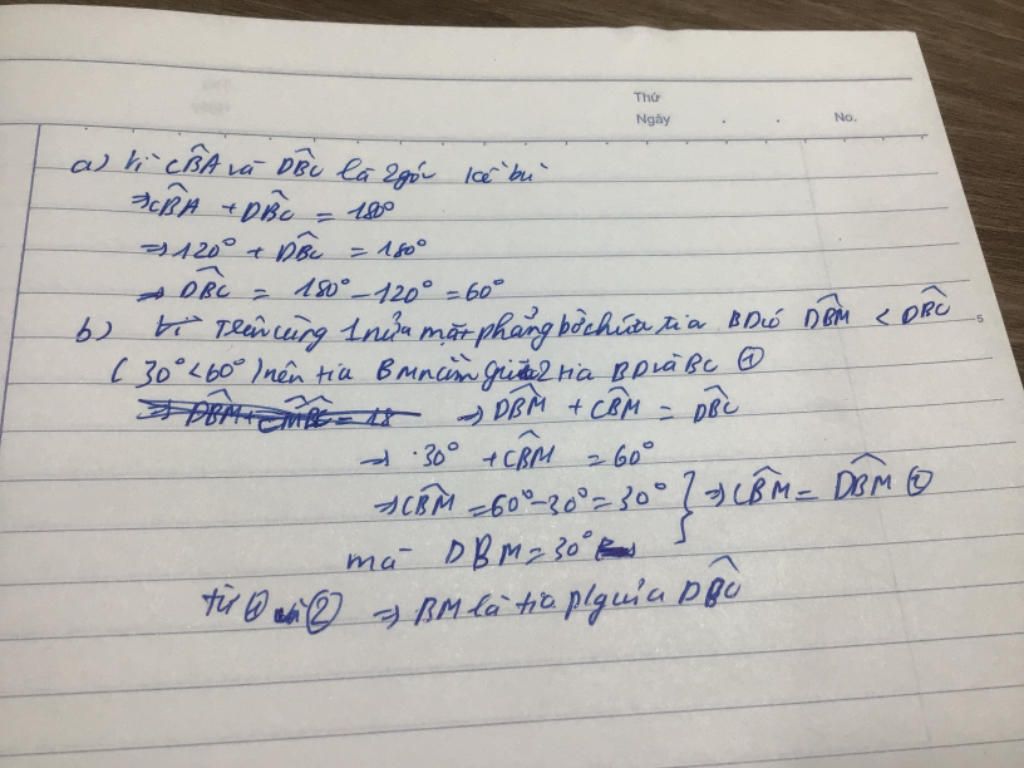 Thứ
Ngày . . No.
a) Vì CB̂A và DB̂C là 2 góc kề bù
⇒ CB̂A + DB̂C = 180°
⇒ 120° + DB̂C = 180°
⇒ DB̂C = 180° - 120° = 60°
b) Vì trên cùng 1 nửa mặt phẳng bờ chứa tia BD có DB̂M < DB̂C
5
(30° < 60°) nên tia BM nằm giữa 2 tia BD và BC ①
⇒ DB̂M + CB̂M = DB̂C
⇒ 30° + CB̂M = 60°
⇒ CB̂M = 60° - 30° = 30° } ⇒ CB̂M = DB̂M ②
mà DBM = 30°
Từ ① và ② ⇒ BM là tia p/g của DB̂C